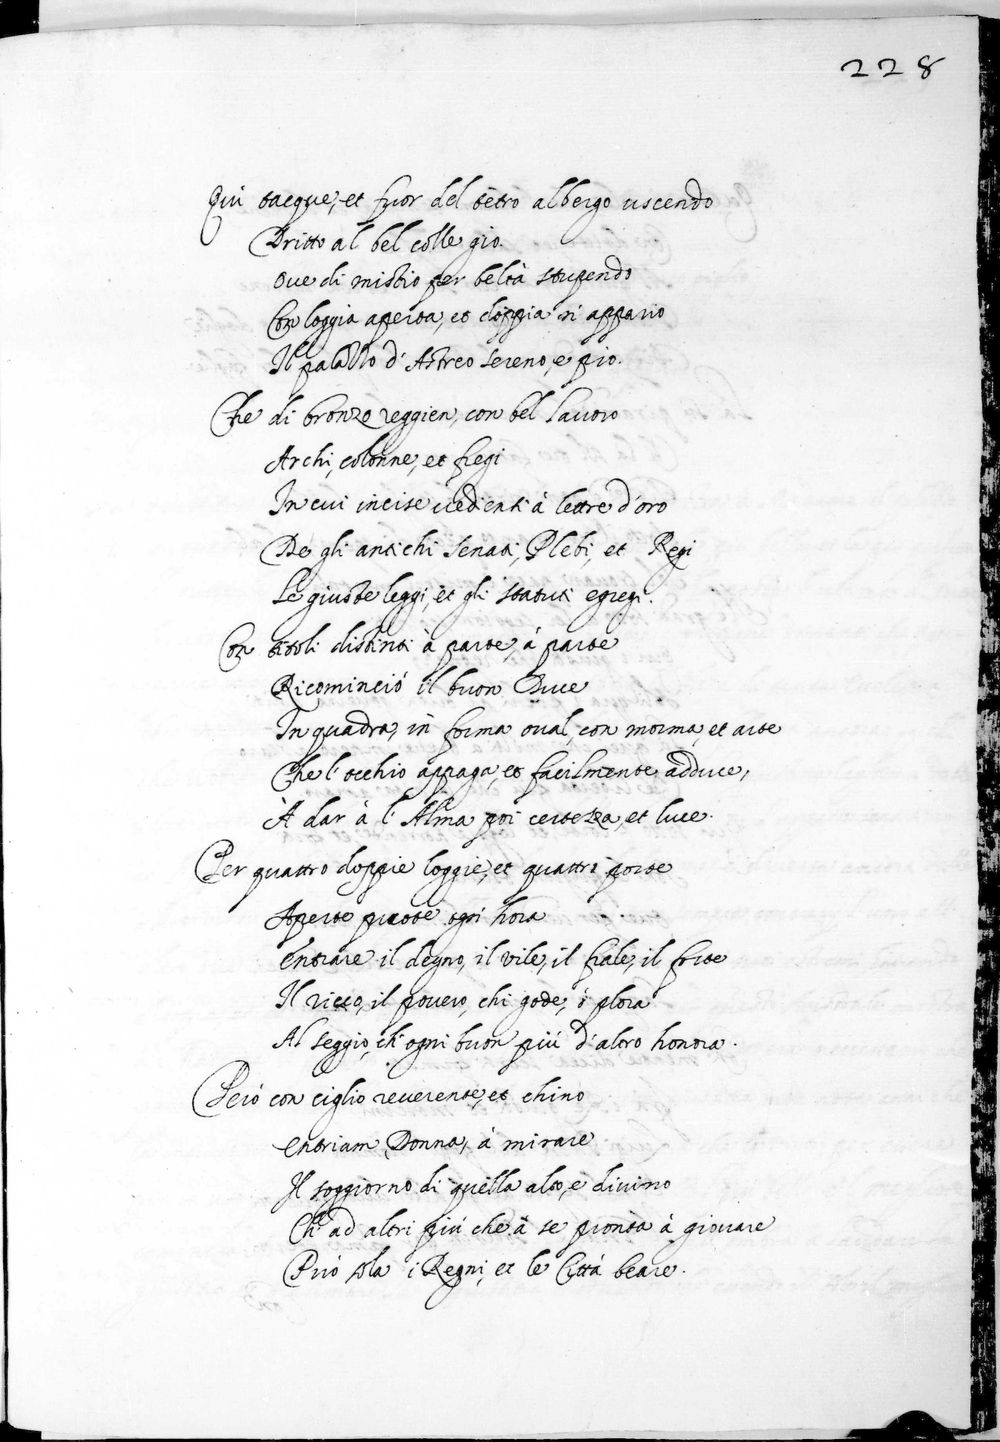 228
Quì tacque, et fuor del tetro albergo uscendo
Dritto al bel colle gio
Ove di mistio per beltà stupendo
Con loggia aperta, et doppia n'appario
Il palazzo d'Astreo sereno, e pio.
Che di bronzo reggien, con bel lavoro
Archi, colonne, et fregi
In cui incise vedienti à lettre d'oro
De gli antichi Senati, Plebi, et Regi
Le giuste leggi, et gli statuti egregi.
Con titoli distinti à parte, à parte
Ricominciò il buon Duce
In quadra, in forma oval, con norma, et arte
Che l'occhio appaga, et facilmente adduce,
À dar à l'Alma poi certezza, et luce.
Per quattro doppie loggie, et quattro porte
Aperte puote ogni hora
Entrare il degno, il vile, il frale, il forte
Il ricco, il povero, chi gode, ò plora
Al seggio, ch'ogni buon più d'altro honora.
Però con ciglio reverente, et chino
Entriam Donna, à mirare
Il soggiorno di quella alto, e divino
Ch' ad altri più che à se pronta à giovare
Può sola i Regni, et le Città beare.